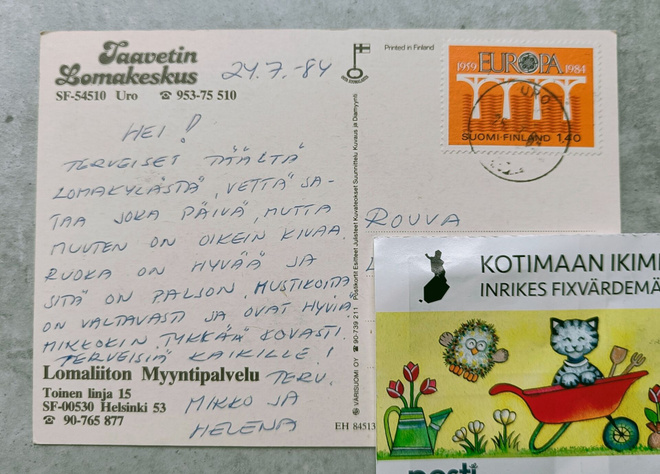 Taavetin
Lomakeskus
SF-54510 Uro ☎ 953-75 510
24.7.-84
HEI!
TERVEISET TÄÄLTÄ
LOMAKYLÄSTÄ, VETTÄ SA-
TAA JOKA PÄIVÄ, MUTTA
MUUTEN ON OIKEIN KIVAA.
RUOKA ON HYVÄÄ JA
SITÄ ON PALJON, MUSTIKOITA
ON VALTAVASTI JA OVAT HYVIÄ,
MIKKOKIN TYKKÄÄ KOVASTI.
TERVEISIÄ KAIKILLE!
TERV.
MIKKO JA
HELENA
Lomaliiton Myyntipalvelu
Toinen linja 15
SF-00530 Helsinki 53
☎ 90-765 877
Printed in Finland
VÄRISUOMI OY ☎ 90-739 211 Postikortit Esitteet Julisteet Kuvateokset Suunnittelu Kuvaus ja Diamyynti
EH 84513
1959 EUROPA 1984
SUOMI-FINLAND 1,40
URO
ROUVA
KOTIMAAN IKIM
INRIKES FIXVÄRDEMÄ
posti